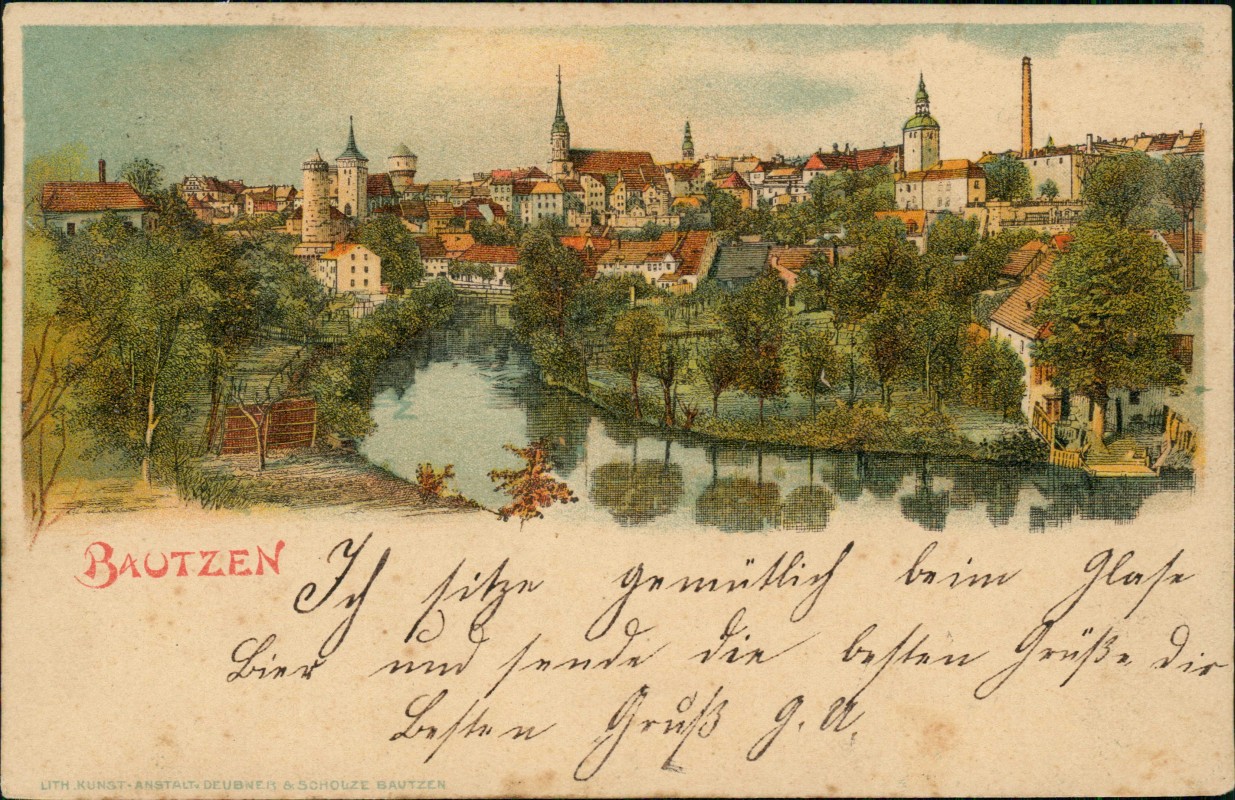 BAUTZEN
Ich sitze gemütlich beim Glase
Bier und sende die besten Grüße Dir
Besten Gruß G. U.
LITH. KUNST-ANSTALT. DEUBNER & SCHOLZE BAUTZEN